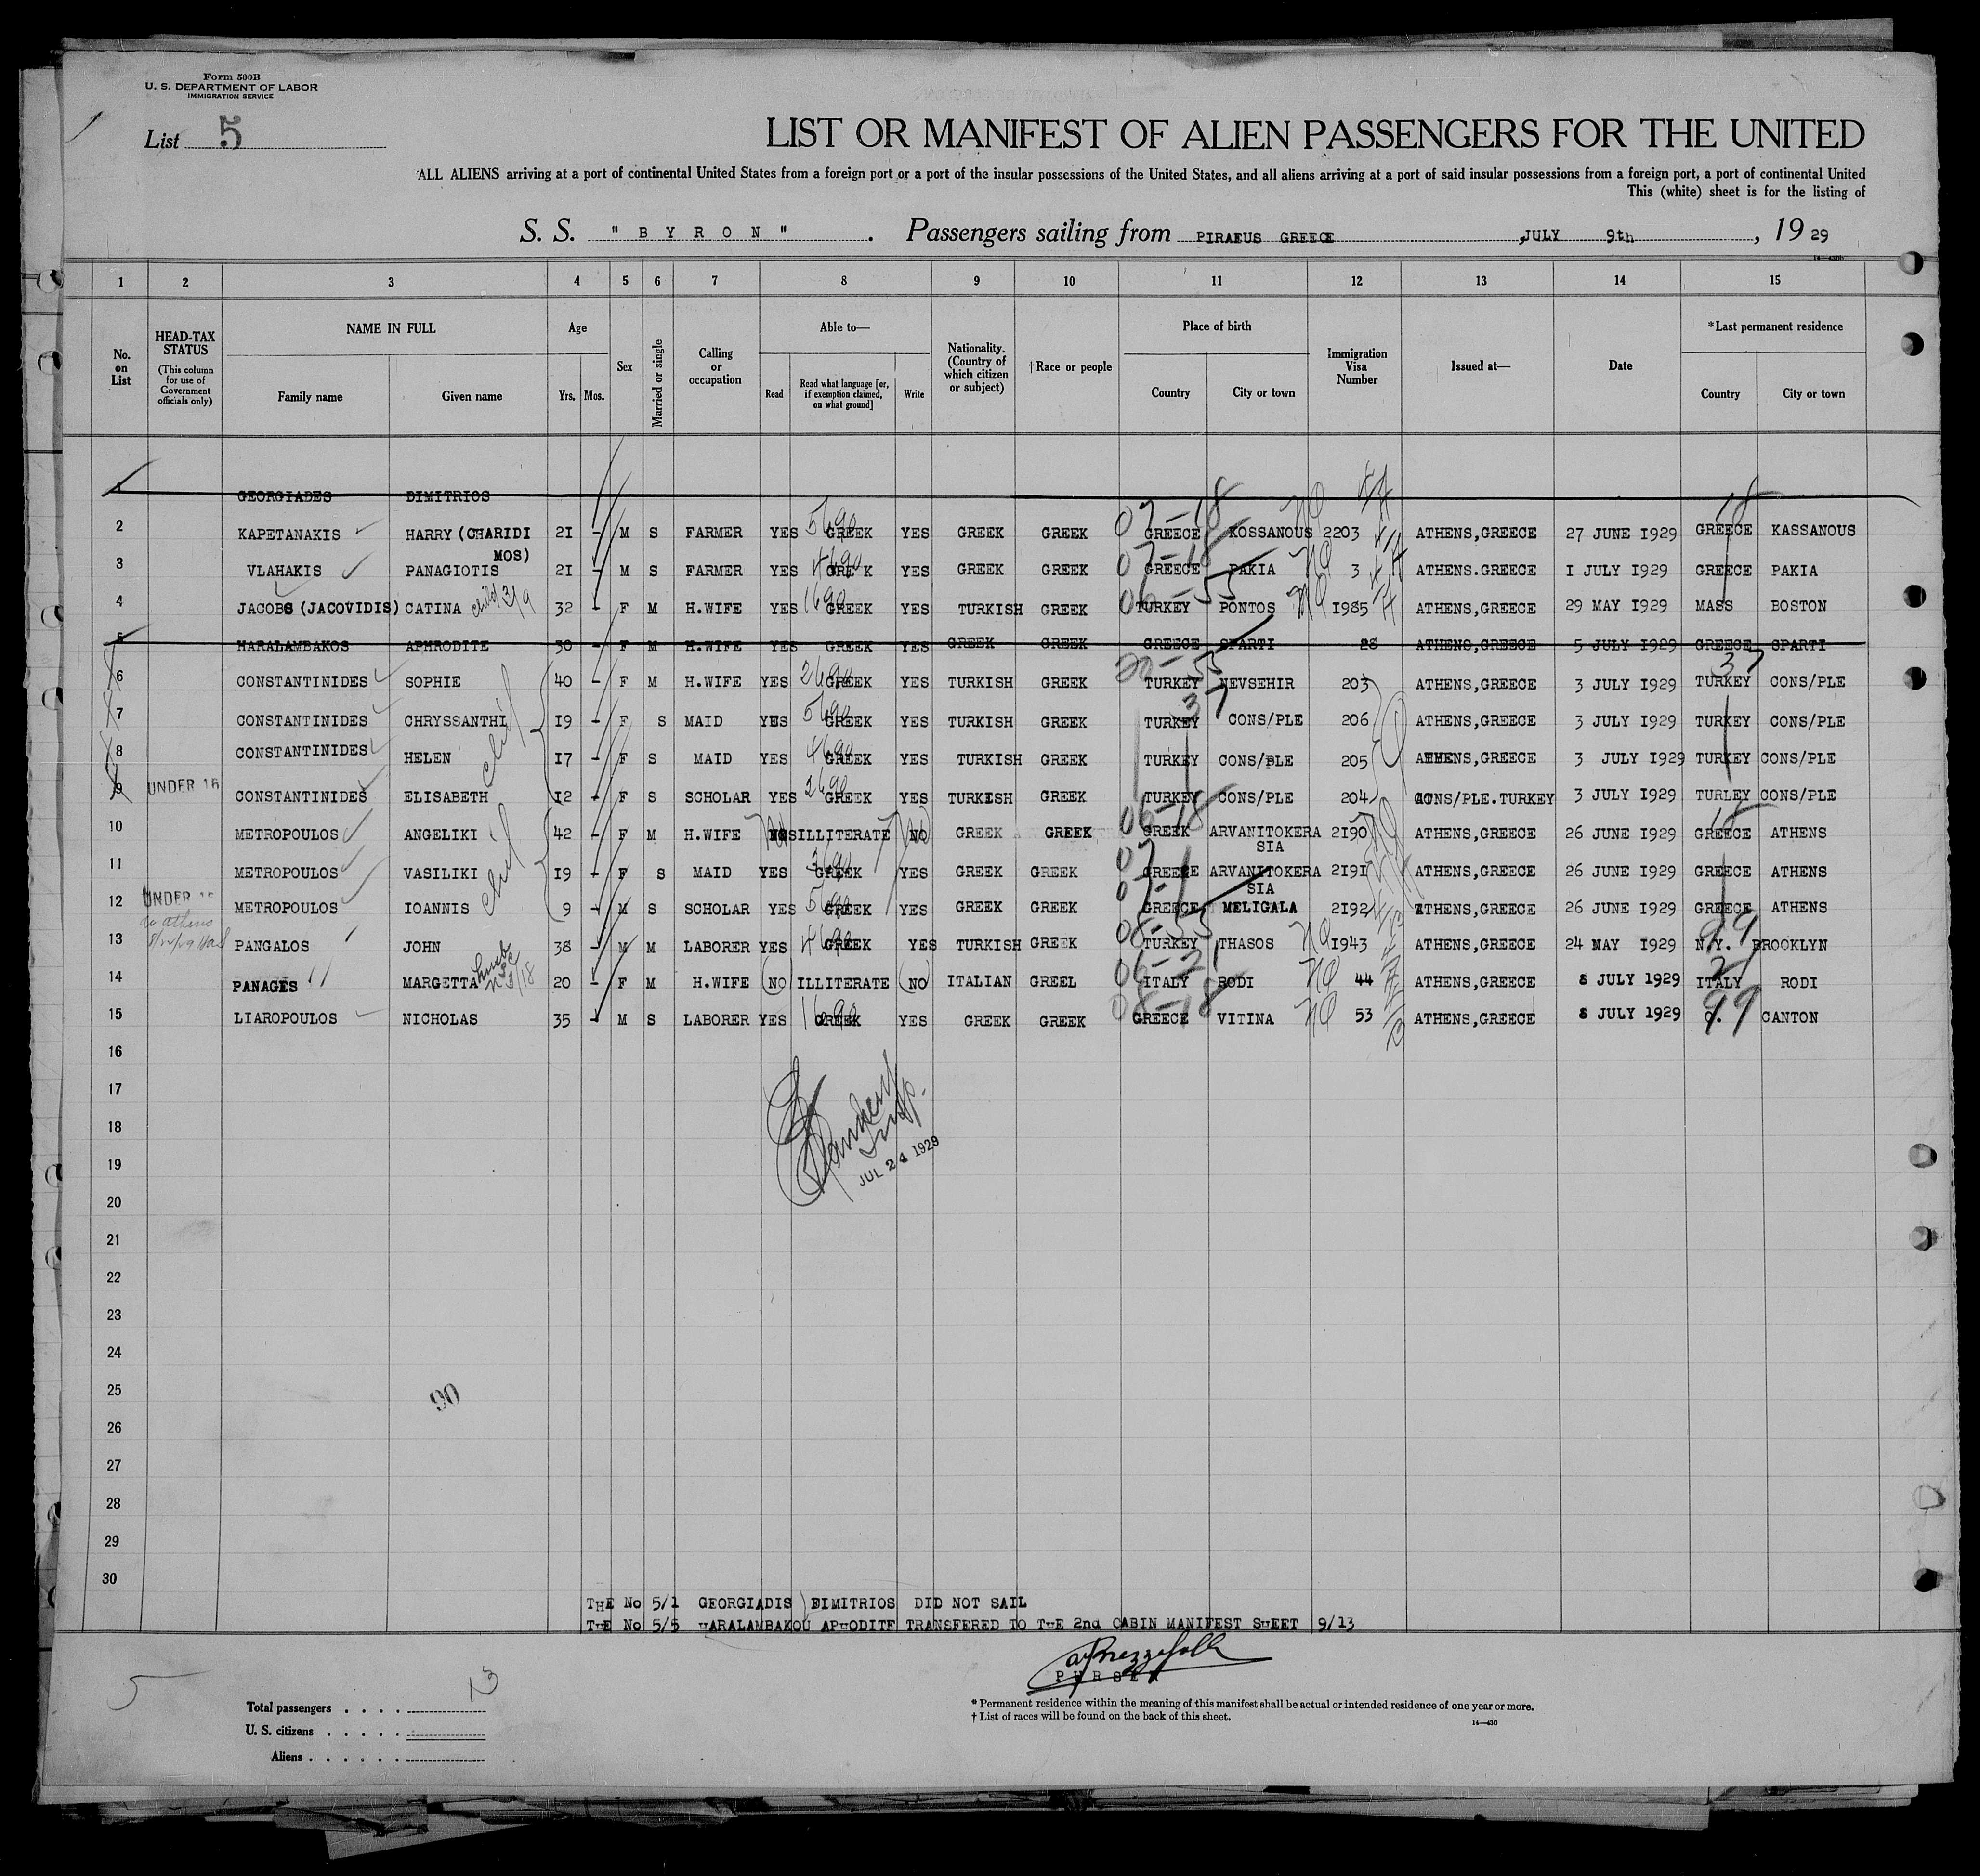 Form 500B
U. S. DEPARTMENT OF LABOR
IMMIGRATION SERVICE
List 5
LIST OR MANIFEST OF ALIEN PASSENGERS FOR THE UNITED
ALL ALIENS arriving at a port of continental United States from a foreign port or a port of the insular possessions of the United States, and all aliens arriving at a port of said insular possessions from a foreign port, a port of continental United
This (white) sheet is for the listing of
S. S. "BYRON". Passengers sailing from PIRAEUS GREECE, JULY 9th, 1929
1 2 3 4 5 6 7 8 9 10 11 12 13 14 15
No. on List
HEAD-TAX STATUS
(This column for use of Government officials only)
NAME IN FULL
Family name Given name
Age
Yrs. Mos.
Sex
Married or single
Calling or occupation
Able to—
Read
Read what language [or, if exemption claimed, on what ground]
Write
Nationality. (Country of which citizen or subject)
†Race or people
Place of birth
Country City or town
Immigration Visa Number
Issued at—
Date
*Last permanent residence
Country City or town
1 GEORGIADES DIMITRIOS
2 KAPETANAKIS HARRY (CHARIDI MOS) 21 - M S FARMER YES GREEK YES GREEK GREEK GREECE KOSSANOUS 2203 ATHENS,GREECE 27 JUNE 1929 GREECE KASSANOUS
3 VLAHAKIS PANAGIOTIS 21 - M S FARMER YES GREEK YES GREEK GREEK GREECE PAKIA 3 ATHENS.GREECE 1 JULY 1929 GREECE PAKIA
4 JACOBS (JACOVIDIS) CATINA 32 - F M H.WIFE YES GREEK YES TURKISH GREEK TURKEY PONTOS 1985 ATHENS,GREECE 29 MAY 1929 MASS BOSTON
5 HARALAMBAKOS APHRODITE 30 - F M H.WIFE YES GREEK YES GREEK GREEK GREECE SPARTI 28 ATHENS,GREECE 5 JULY 1929 GREECE SPARTI
6 CONSTANTINIDES SOPHIE 40 - F M H.WIFE YES GREEK YES TURKISH GREEK TURKEY NEVSEHIR 203 ATHENS,GREECE 3 JULY 1929 TURKEY CONS/PLE
7 CONSTANTINIDES CHRYSSANTHI 19 - F S MAID YES GREEK YES TURKISH GREEK TURKEY CONS/PLE 206 ATHENS,GREECE 3 JULY 1929 TURKEY CONS/PLE
8 CONSTANTINIDES HELEN 17 - F S MAID YES GREEK YES TURKISH GREEK TURKEY CONS/PLE 205 ATHENS,GREECE 3 JULY 1929 TURKEY CONS/PLE
9 UNDER 16 CONSTANTINIDES ELISABETH 12 - F S SCHOLAR YES GREEK YES TURKISH GREEK TURKEY CONS/PLE 204 CONS/PLE.TURKEY 3 JULY 1929 TURLEY CONS/PLE
10 METROPOULOS ANGELIKI 42 - F M H.WIFE NO ILLITERATE NO GREEK GREEK GREEK ARVANITOKERA SIA 2190 ATHENS,GREECE 26 JUNE 1929 GREECE ATHENS
11 METROPOULOS VASILIKI 19 - F S MAID YES GREEK YES GREEK GREEK GREECE ARVANITOKERA SIA 2191 ATHENS,GREECE 26 JUNE 1929 GREECE ATHENS
12 UNDER METROPOULOS IOANNIS 9 - M S SCHOLAR YES GREEK YES GREEK GREEK GREECE MELIGALA 2192 ATHENS,GREECE 26 JUNE 1929 GREECE ATHENS
13 PANGALOS JOHN 38 - M M LABORER YES GREEK YES TURKISH GREEK TURKEY THASOS 1943 ATHENS,GREECE 24 MAY 1929 N.Y. BROOKLYN
14 PANAGES MARGETTA 20 - F M H.WIFE NO ILLITERATE NO ITALIAN GREEL ITALY RODI 44 ATHENS,GREECE 8 JULY 1929 ITALY RODI
15 LIAROPOULOS NICHOLAS 35 - M S LABORER YES GREEK YES GREEK GREEK GREECE VITINA 53 ATHENS,GREECE 8 JULY 1929 O. CANTON
16
17
18
JUL 24 1929
19
20
21
22
23
24
25
90
26
27
28
29
30
THE No 5/1 GEORGIADIS DIMITRIOS DID NOT SAIL
THE No 5/5 HARALAMBAKOU APHODITE TRANSFERED TO THE 2nd CABIN MANIFEST SHEET 9/13
PURSER
5
Total passengers . . . . 13
U. S. citizens . . . . .
Aliens . . . . . .
* Permanent residence within the meaning of this manifest shall be actual or intended residence of one year or more.
† List of races will be found on the back of this sheet.
14—430